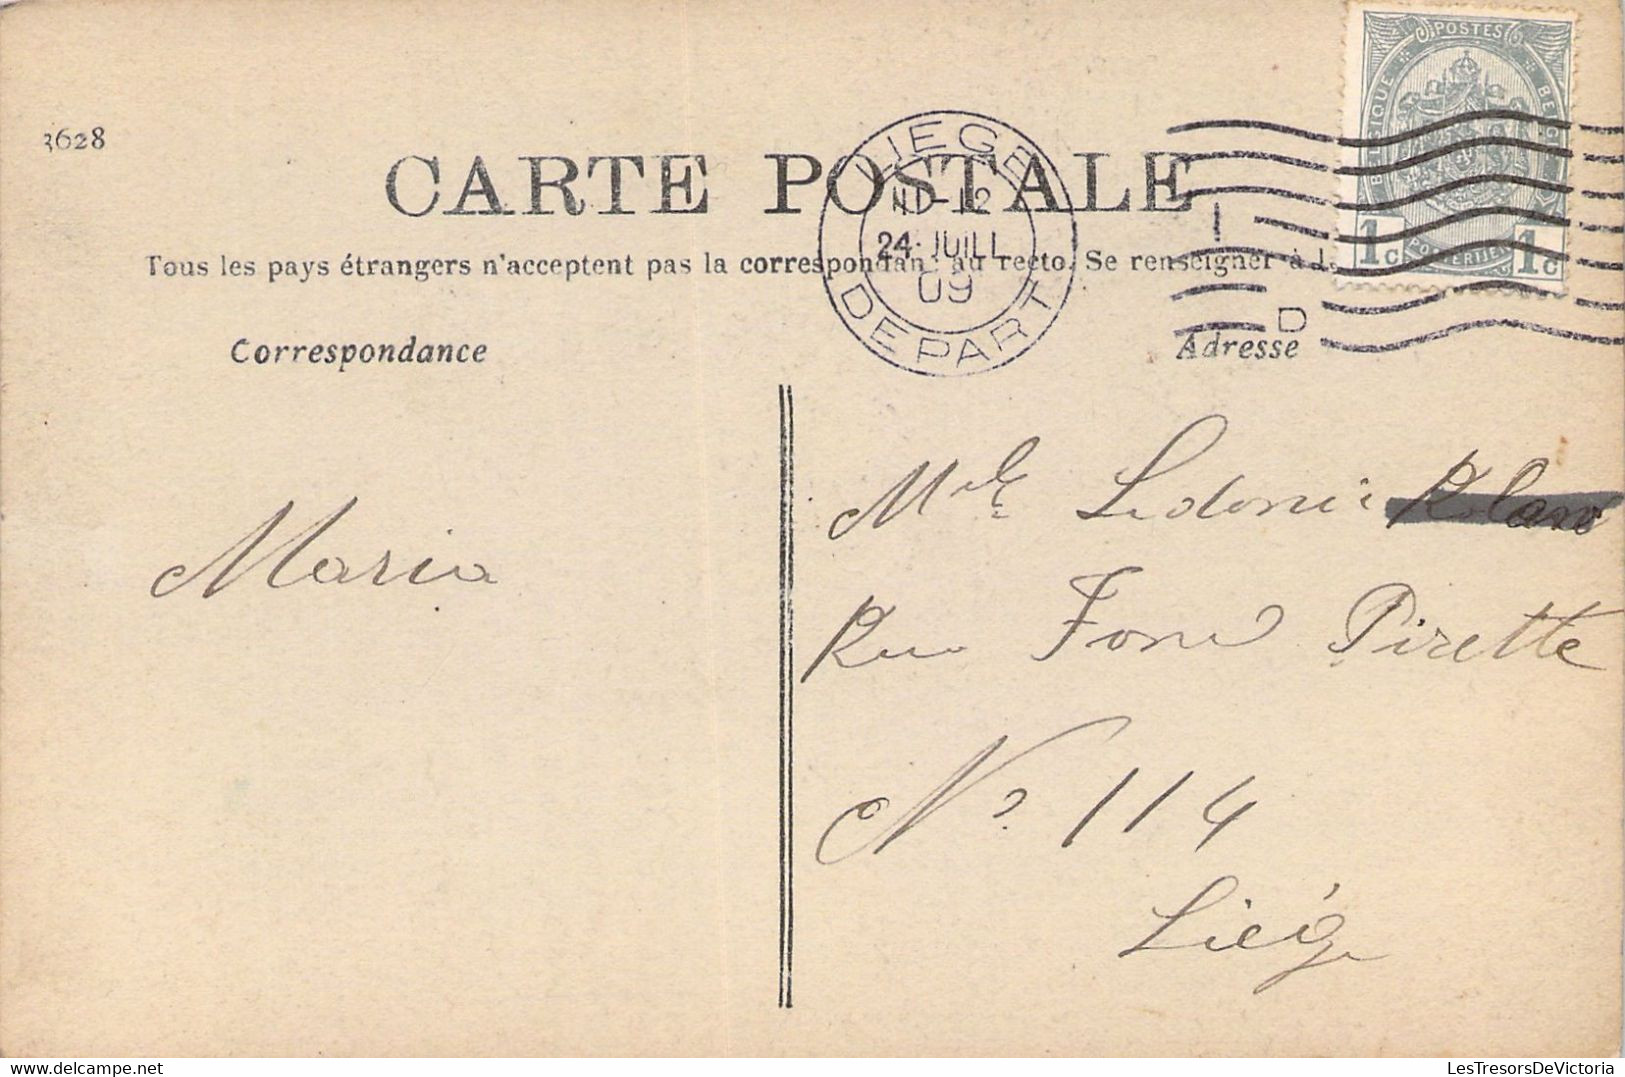 POSTES
BELGIQUE
BELGIË
POSTERIJEN
1c 1c
3628
CARTE POSTALE
LIEGE
11-12
24 JUILL
09
DEPART
Tous les pays étrangers n'acceptent pas la correspondan au recto. Se renseigner à l
D
Correspondance
Adresse
Maria
Mlle Ledonie
Rue Fond Pirette
No 114
Liége
LesTresorsDeVictoria